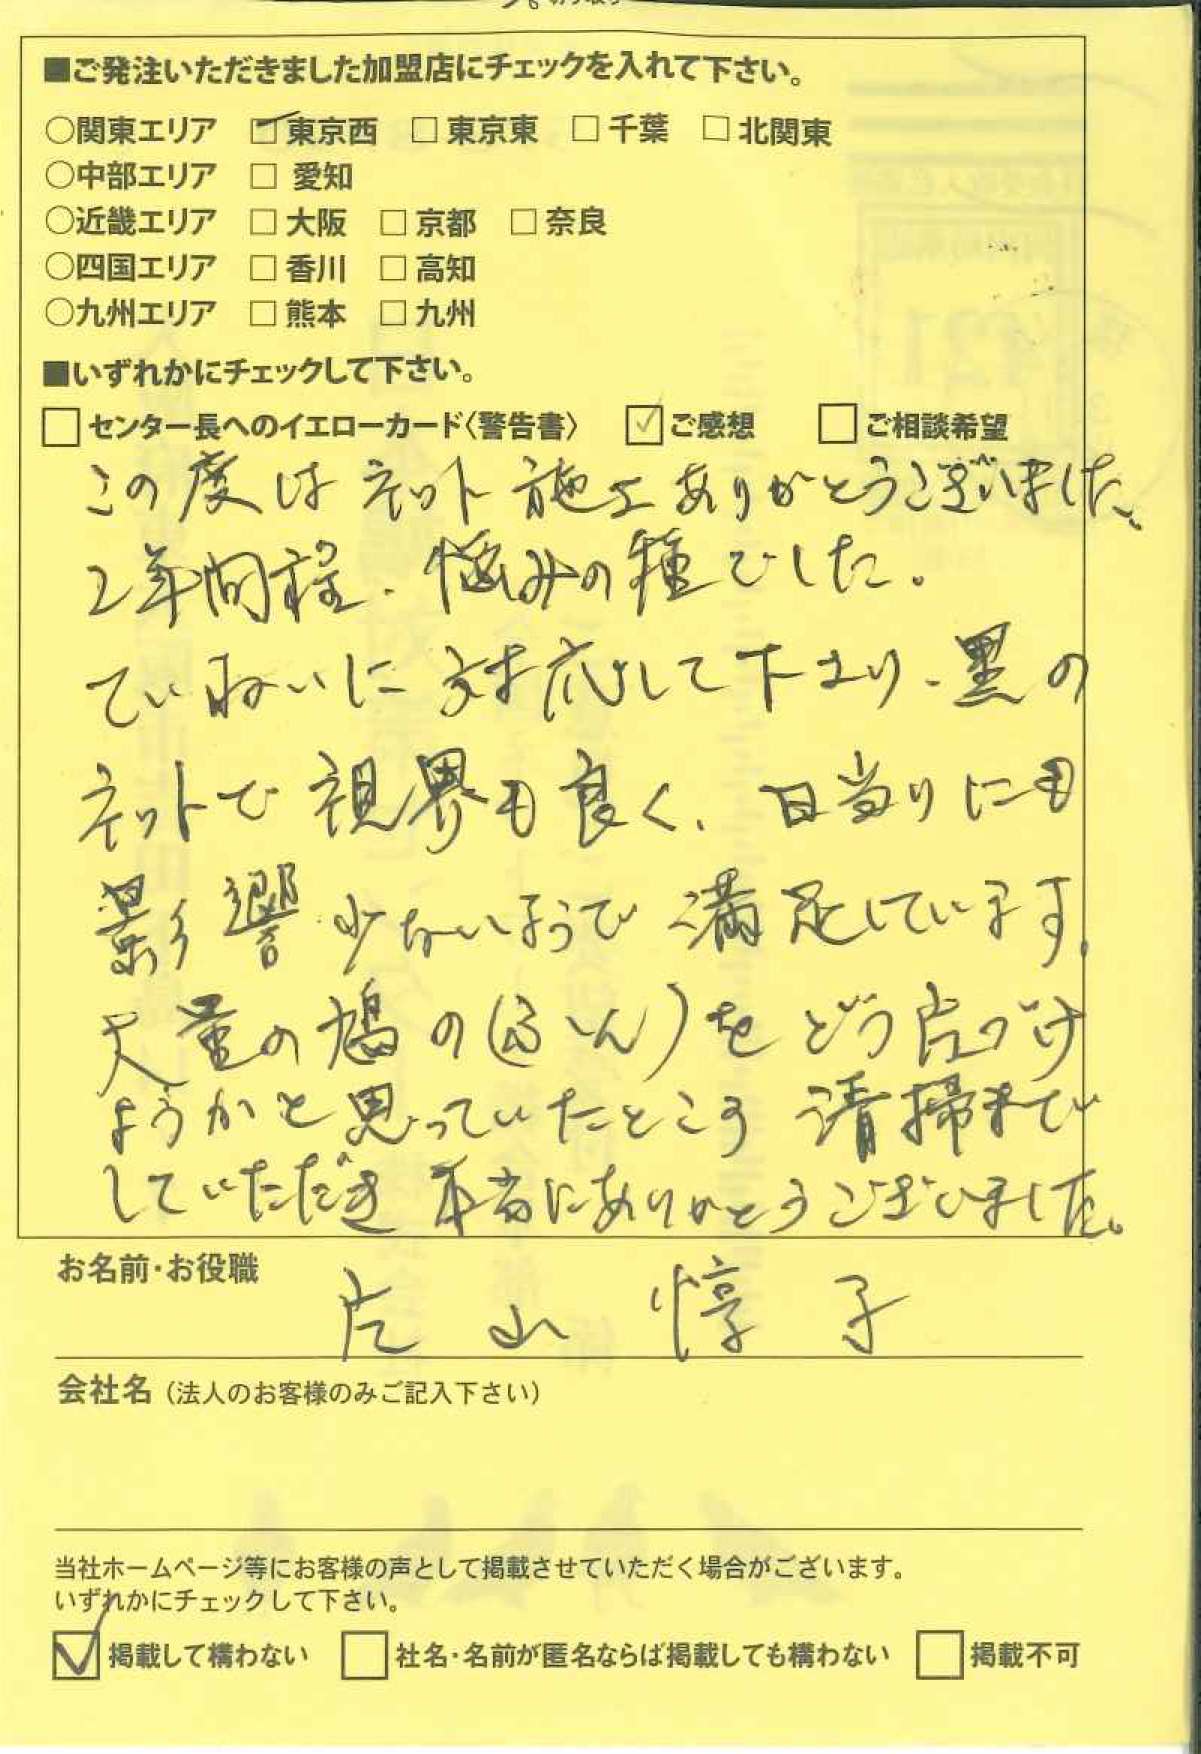 ■ご発注いただきました加盟店にチェックを入れて下さい。
○関東エリア ☑東京西 □東京東 □千葉 □北関東
○中部エリア □愛知
○近畿エリア □大阪 □京都 □奈良
○四国エリア □香川 □高知
○九州エリア □熊本 □九州
■いずれかにチェックして下さい。
□センター長へのイエローカード〈警告書〉 ☑ご感想 □ご相談希望
この度はネット施工ありがとうございました。
2年間程、悩みの種でした。
ていねいに対応して下さり、黒の
ネットで視界も良く、日当りにも
影響少ないようで満足しています。
大量の鳩の(ふん)をどう片づけ
ようかと思っていたところ清掃まで
していただき本当にありがとうございました。
お名前・お役職 片山 惇子
会社名(法人のお客様のみご記入下さい)
当社ホームページ等にお客様の声として掲載させていただく場合がございます。
いずれかにチェックして下さい。
☑掲載して構わない □社名・名前が匿名ならば掲載しても構わない □掲載不可